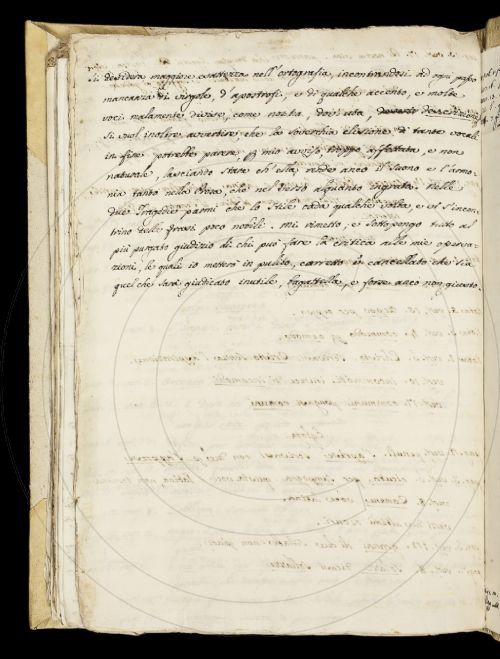 Si desidera maggiore esattezza nell'ortografia, incontrandosi ad ogni passo
mancanza di virgole, d'apostrofi, e di qualche accento, e molte
voci malamente divise, come
Si vuol inoltre avvertire che la soverchia elisione di tante vocali
in fine potrebbe parere a mio avviso troppo affettata, e non
naturale, lasciando stare ch'ella rende anco il suono e l'armo-
nia tanto nella Prosa, che nel Verso alquanto ingrata. Nelle
due Tragedie parmi che lo stile cada qualche volta, e vi s'incon-
trino delle frasi poco nobili. Mi rimetto, e sottopongo tutto al
più purgato giudizio di chi può fare la critica alle mie osserva-
zioni, le quali io metterò in pulito, corretto o cancellato che sia
quel che sarà giudicato inutile, bagattella, e forse anco non giusto.